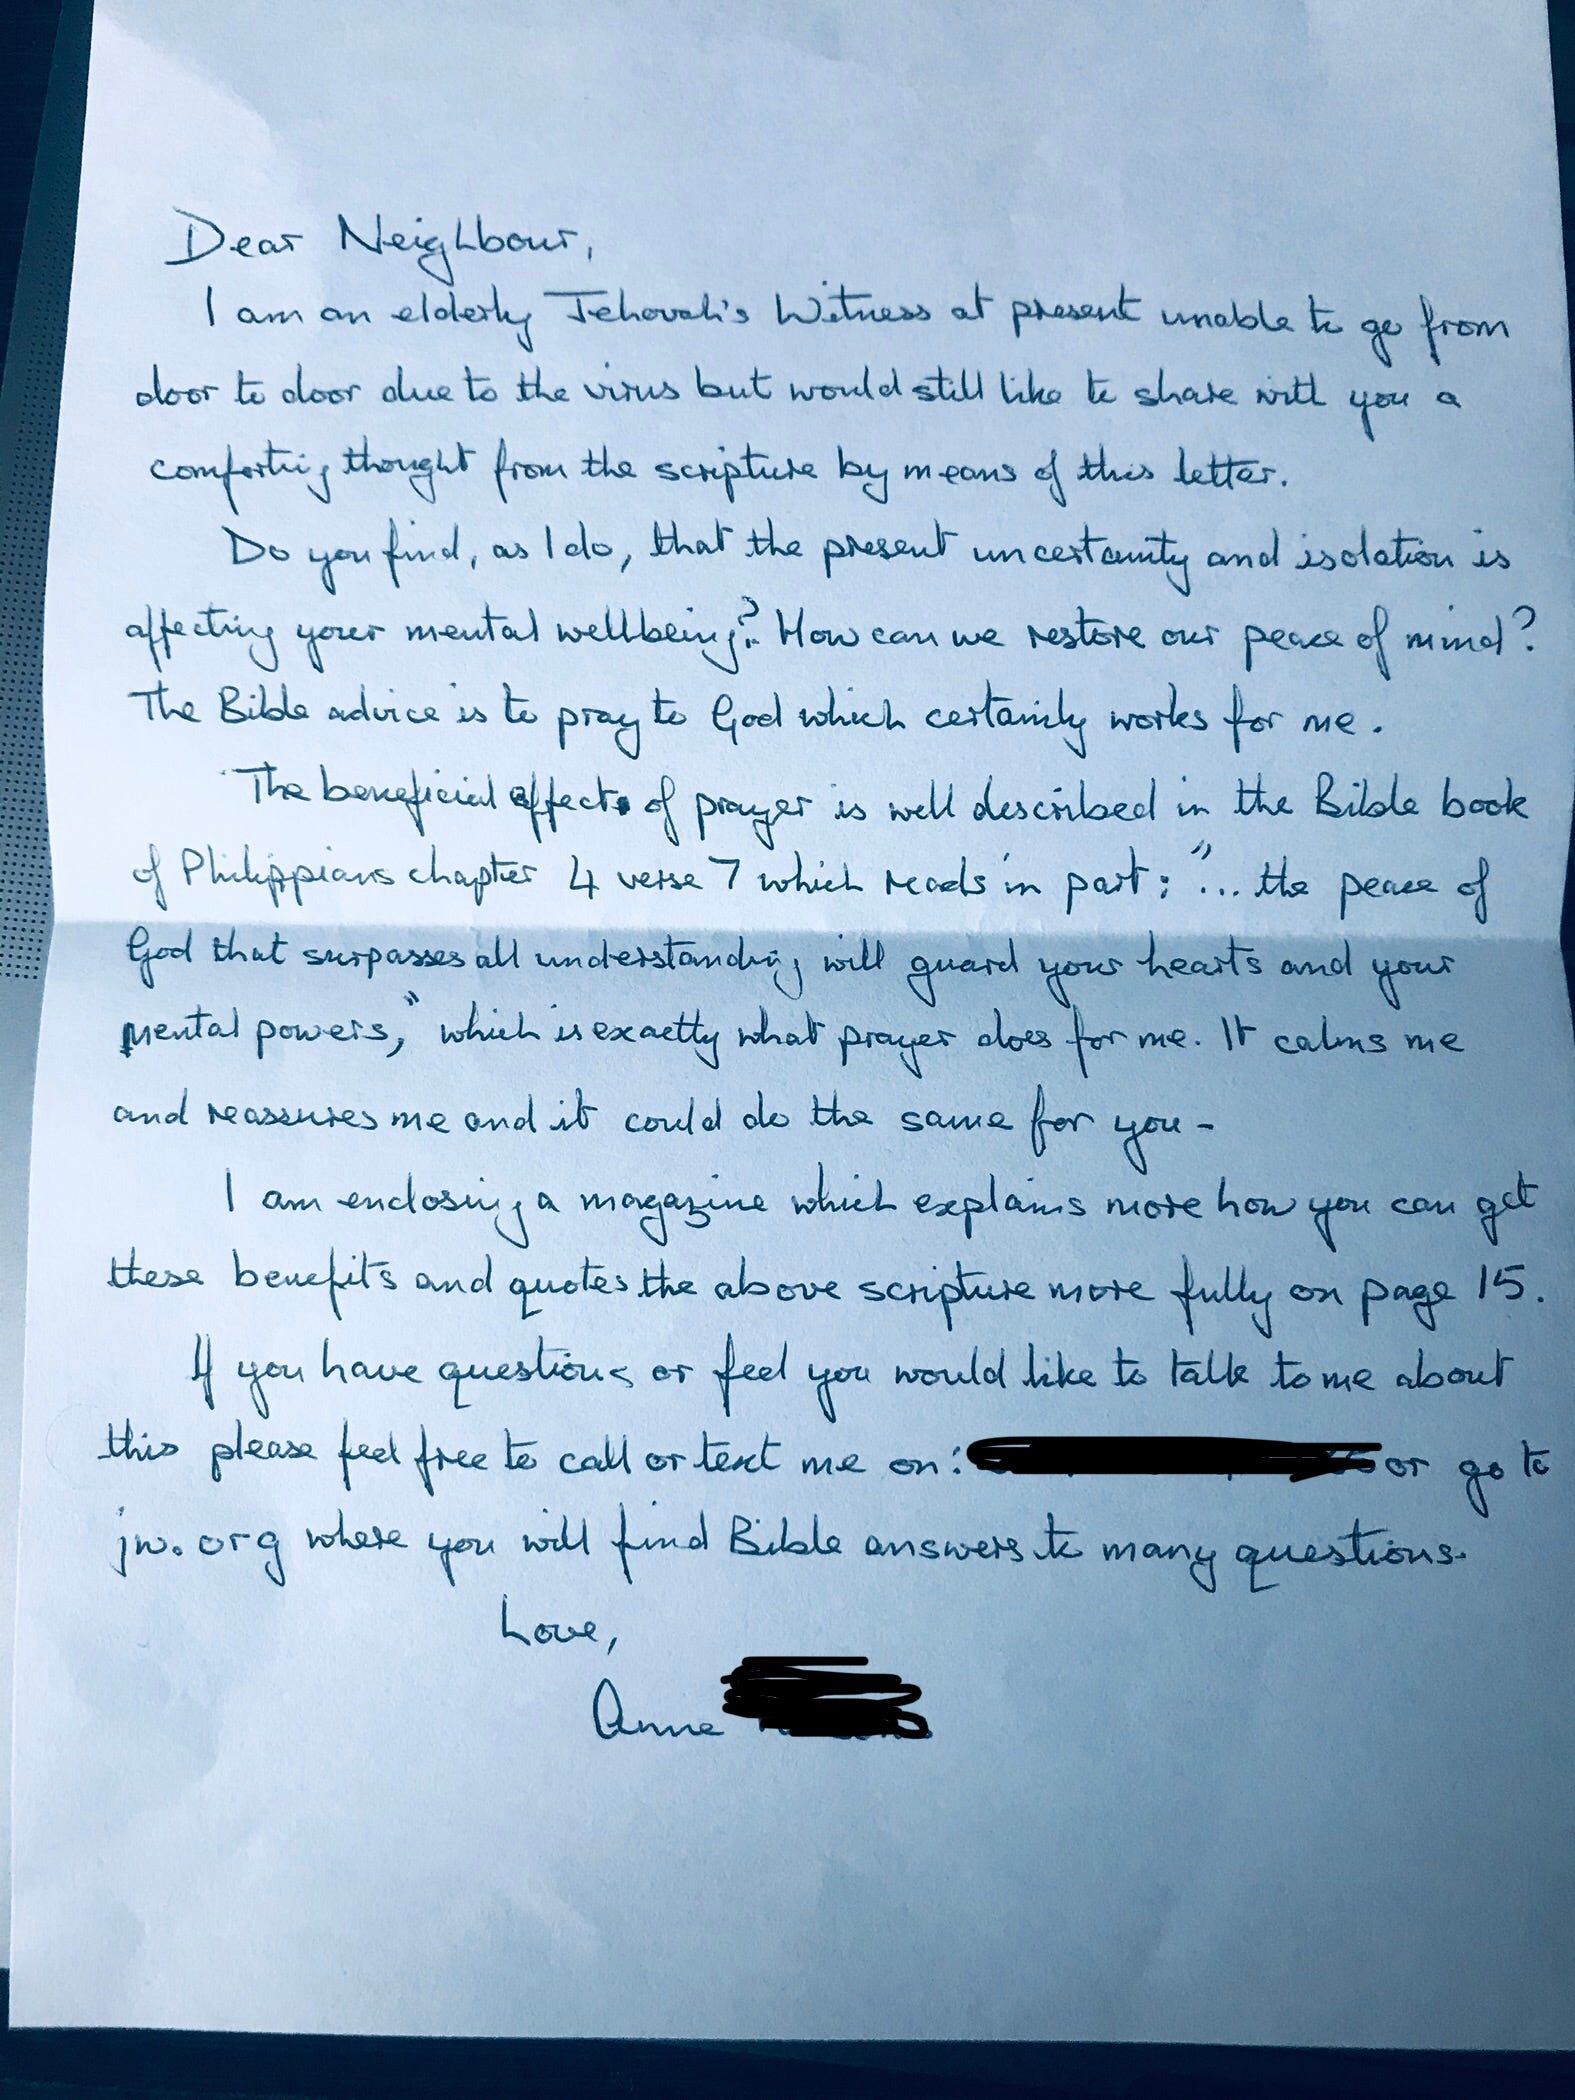 Dear Neighbour,
I am an elderly Jehovah's Witness at present unable to go from
door to door due to the virus but would still like to share with you a
comforting thought from the scripture by means of this letter.
Do you find, as I do, that the present uncertainty and isolation is
affecting your mental wellbeing? How can we restore our peace of mind?
The Bible advice is to pray to God which certainly works for me.
The beneficial effect of prayer is well described in the Bible book
of Philippians chapter 4 verse 7 which reads in part: "... the peace of
God that surpasses all understanding will guard your hearts and your
mental powers," which is exactly what prayer does for me. It calms me
and reassures me and it could do the same for you -
I am enclosing a magazine which explains more how you can get
these benefits and quotes the above scripture more fully on page 15.
If you have questions or feel you would like to talk to me about
this please feel free to call or text me on: or go to
jw.org where you will find Bible answers to many questions.
Love,
Anne